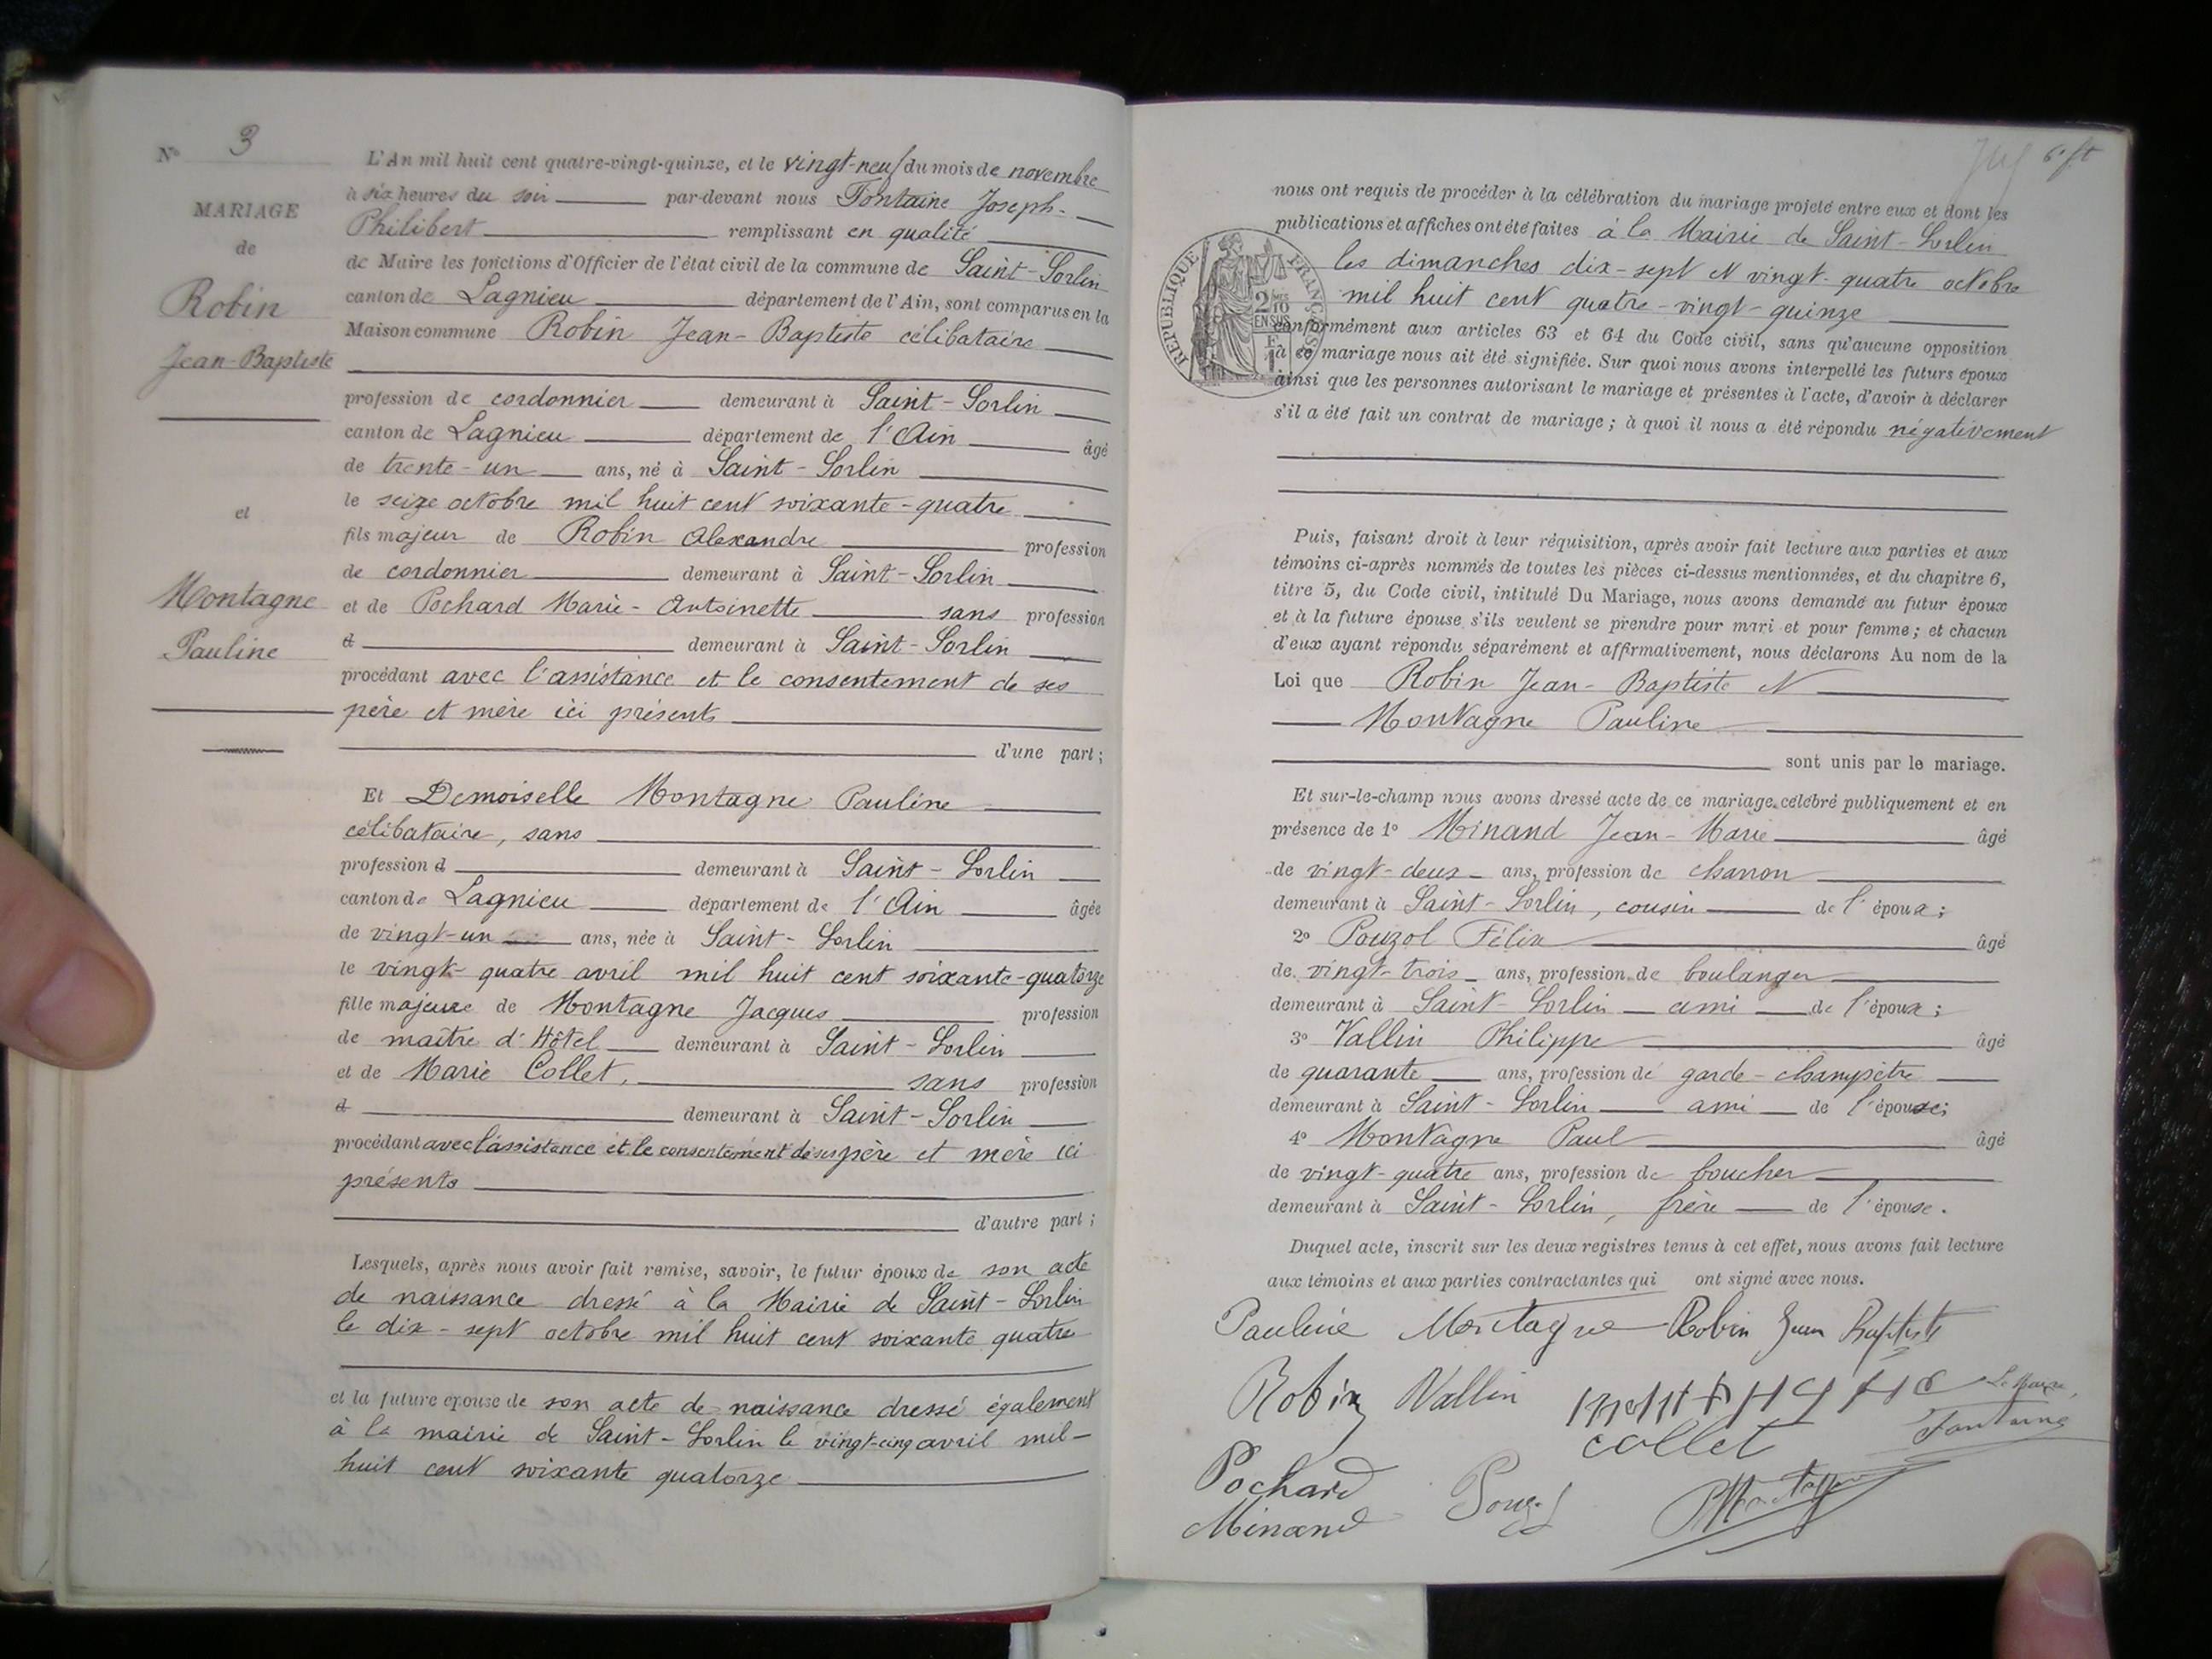 N° 3
MARIAGE
de
Robin
Jean-Baptiste
et
Montagne
Pauline
L'An mil huit cent quatre-vingt-quinze, et le vingt-neuf du mois de novembre
à six heures du soir par-devant nous Fontaine Joseph-
Philibert remplissant en qualité
de Maire les fonctions d'Officier de l'état civil de la commune de Saint-Sorlin
canton de Lagnieu département de l'Ain, sont comparus en la
Maison commune Robin Jean-Baptiste célibataire
profession de cordonnier demeurant à Saint-Sorlin
canton de Lagnieu département de l'Ain âgé
de trente-un ans, né à Saint-Sorlin
le seize octobre mil huit cent soixante-quatre
fils majeur de Robin Alexandre profession
de cordonnier demeurant à Saint-Sorlin
et de Pochard Marie-Antoinette sans profession
d demeurant à Saint-Sorlin
procédant avec l'assistance et le consentement de ses
père et mère ici présents
d'une part;
Et Demoiselle Montagne Pauline
célibataire, sans
profession d demeurant à Saint-Sorlin
canton de Lagnieu département de l'Ain âgée
de vingt-un ans, née à Saint-Sorlin
le vingt-quatre avril mil huit cent soixante-quatorze
fille majeure de Montagne Jacques profession
de maître d'Hôtel demeurant à Saint-Sorlin
et de Marie Collet, sans profession
d demeurant à Saint-Sorlin
procédant avec l'assistance et le consentement de ses père et mère ici
présents
d'autre part;
Lesquels, après nous avoir fait remise, savoir, le futur époux de son acte
de naissance dressé à la Mairie de Saint-Sorlin
le dix-sept octobre mil huit cent soixante quatre
et la future épouse de son acte de naissance dressé également
à la mairie de Saint-Sorlin le vingt-cinq avril mil-
huit cent soixante quatorze
6e ft
nous ont requis de procéder à la célébration du mariage projeté entre eux et dont les
publications et affiches ont été faites à la Mairie de Saint-Sorlin
les dimanches dix-sept et vingt-quatre octobre
mil huit cent quatre-vingt-quinze
conformément aux articles 63 et 64 du Code civil, sans qu'aucune opposition
à ce mariage nous ait été signifiée. Sur quoi nous avons interpellé les futurs époux
ainsi que les personnes autorisant le mariage et présentes à l'acte, d'avoir à déclarer
s'il a été fait un contrat de mariage; à quoi il nous a été répondu négativement
RÉPUBLIQUE FRANÇAISE
2 10 EN SUS
Puis, faisant droit à leur réquisition, après avoir fait lecture aux parties et aux
témoins ci-après nommés de toutes les pièces ci-dessus mentionnées, et du chapitre 6,
titre 5, du Code civil, intitulé Du Mariage, nous avons demandé au futur époux
et à la future épouse s'ils veulent se prendre pour mari et pour femme; et chacun
d'eux ayant répondu séparément et affirmativement, nous déclarons Au nom de la
Loi que Robin Jean-Baptiste et
Montagne Pauline
sont unis par le mariage.
Et sur-le-champ nous avons dressé acte de ce mariage célébré publiquement et en
présence de 1° Minand Jean-Marie âgé
de vingt-deux ans, profession de charron
demeurant à Saint-Sorlin, cousin de l'époux;
2° Pouzol Félix âgé
de vingt-trois ans, profession de boulanger
demeurant à Saint-Sorlin ami de l'époux;
3° Vallin Philippe âgé
de quarante ans, profession de garde-champêtre
demeurant à Saint-Sorlin ami de l'épouse;
4° Montagne Paul âgé
de vingt-quatre ans, profession de boucher
demeurant à Saint-Sorlin, frère de l'épouse.
Duquel acte, inscrit sur les deux registres tenus à cet effet, nous avons fait lecture
aux témoins et aux parties contractantes qui ont signé avec nous.
Pauline Montagne Robin Jean Baptiste
Robin Vallin Le Maire,
collet Fontaine
Pochard Pouzol
Minand PMontagne